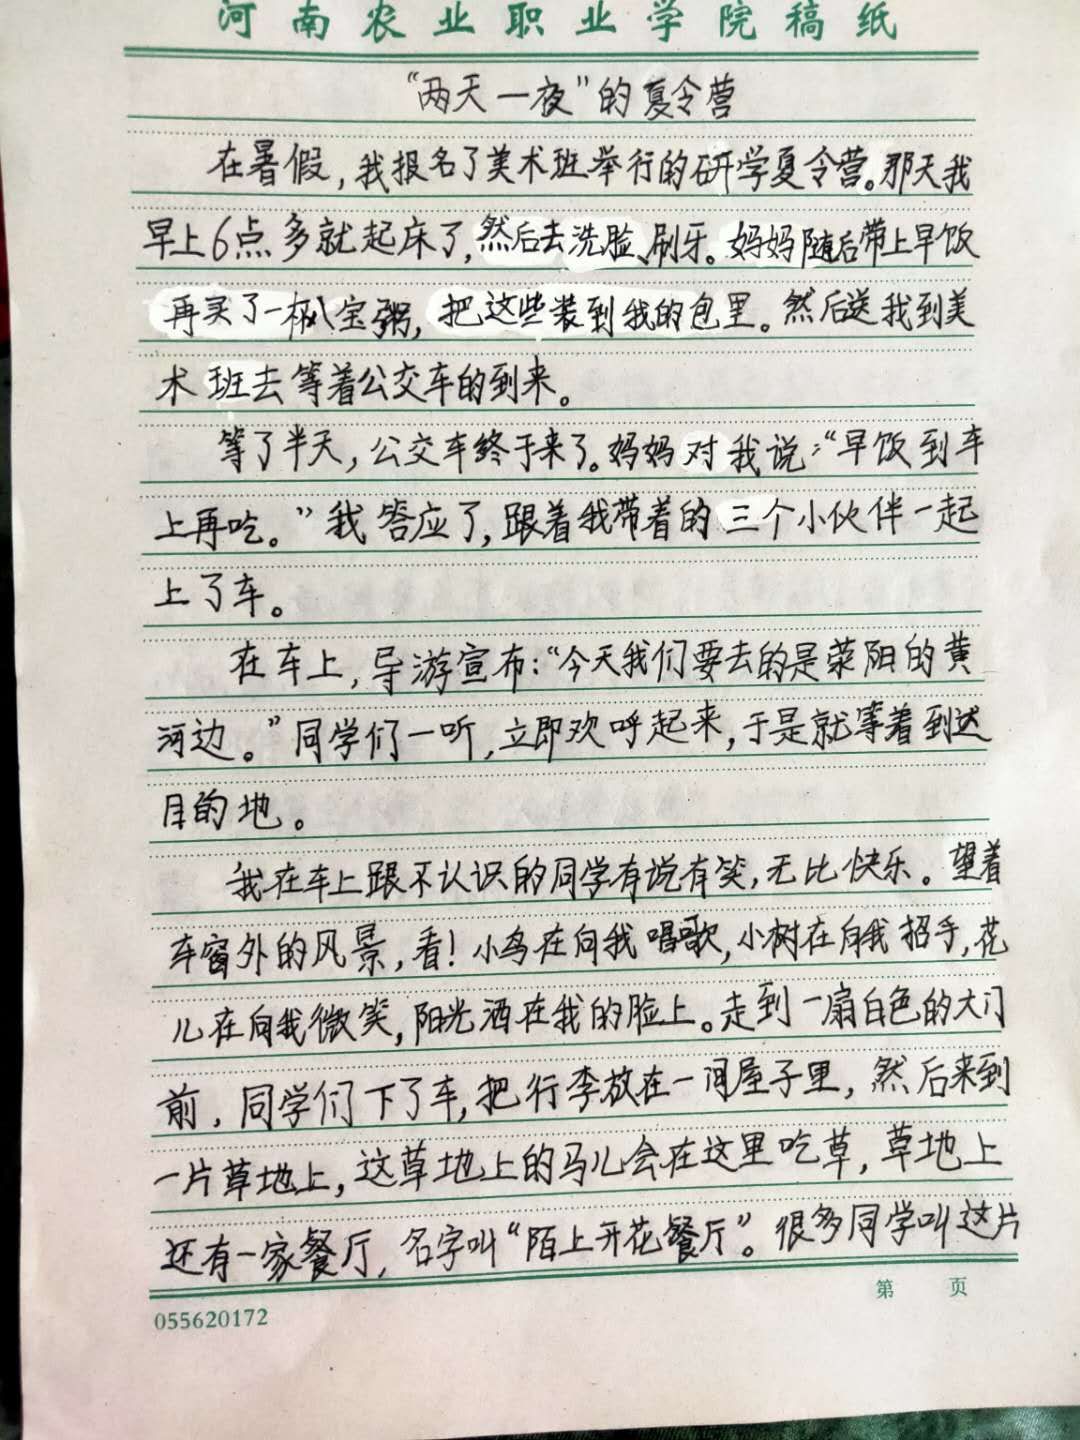 河南农业职业学院稿纸
“两天一夜”的夏令营
在暑假，我报名了美术班举行的研学夏令营。那天我
早上6点多就起床了，然后去洗脸、刷牙。妈妈随后带上早饭
再买了一杯八宝粥，把这些装到我的包里。然后送我到美
术班去等着公交车的到来。
等了半天，公交车终于来了。妈妈对我说：“早饭到车
上再吃。”我答应了，跟着我带着的三个小伙伴一起
上了车。
在车上，导游宣布：“今天我们要去的是荥阳的黄
河边。”同学们一听，立即欢呼起来，于是就等着到达
目的地。
我在车上跟不认识的同学有说有笑，无比快乐。望着
车窗外的风景，看！小鸟在向我唱歌，小树在向我招手，花
儿在向我微笑，阳光洒在我的脸上。走到一扇白色的大门
前，同学们下了车，把行李放在一间屋子里，然后来到
一片草地上，这草地上的马儿会在这里吃草，草地上
还有一家餐厅，名字叫“陌上开花餐厅”。很多同学叫这片
第 页
055620172